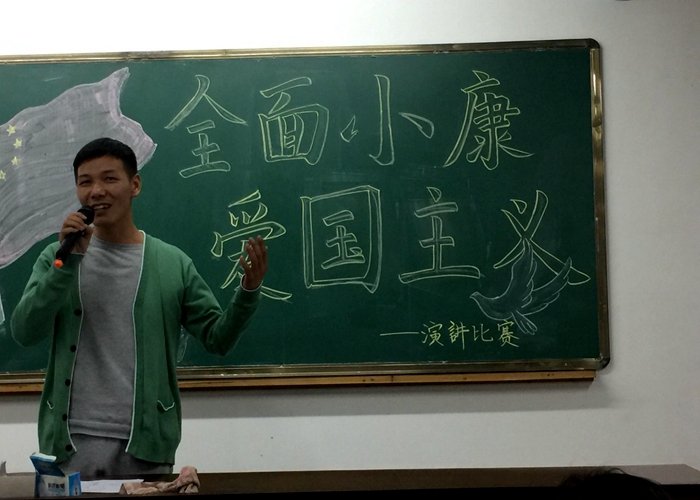 全面小康
爱国主义
——演讲比赛